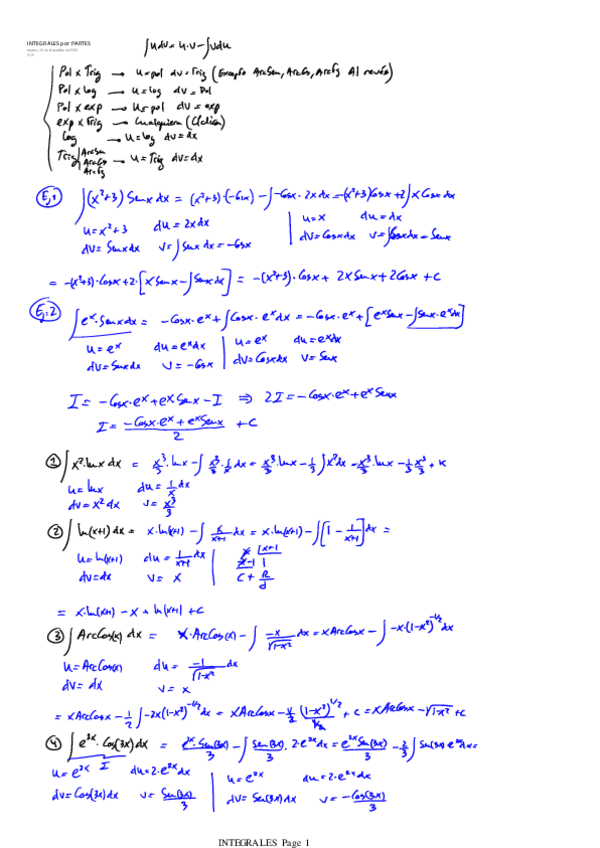 INTEGRALES por PARTES
∫udv = u·v - ∫vdu
Pol x Trig → u=pol dv=Trig (Excepto ArcSen, ArcCos, ArcTg Al revés)
Pol x Log → u=log dv=Pol
Pol x exp → u=pol dv=exp
exp x Trig → Cualquiera (Cíclica)
Log → u=log dv=dx
Trig ArcSen ArcCos ArcTg → u=Trig dv=dx
Ej:1 ∫(x²+3) Senx dx = (x²+3)·(-Cosx) - ∫-Cosx·2xdx = -(x²+3)Cosx + 2∫xCosxdx
u=x²+3 du=2xdx | u=x du=dx
dv=Senxdx v=∫Senxdx=-Cosx | dv=Cosxdx v=∫Cosxdx=Senx
= -(x²+3)·Cosx+2·[xSenx-∫Senxdx] = -(x²+3)·Cosx + 2xSenx+2Cosx + C
Ej:2 ∫eˣ·Senxdx = -Cosx·eˣ+∫Cosx·eˣdx = -Cosx·eˣ+[eˣSenx-∫Senx·eˣdx]
u=eˣ du=eˣdx | u=eˣ du=eˣdx
dv=Senxdx v=-Cosx | dv=Cosxdx v=Senx
I = -Cosx·eˣ+eˣSenx-I ⇒ 2I=-Cosx·eˣ+eˣSenx
I = (-Cosx·eˣ+eˣSenx)/2 + C
① ∫x²·lnx dx = x³/3·lnx - ∫x³/3·1/x dx = x³/3·lnx - 1/3∫x²dx = x³/3·lnx - 1/3 x³/3 + K
u=lnx du=1/x dx
dv=x²dx v=x³/3
② ∫ln(x+1)dx = x·ln(x+1) - ∫x/(x+1) dx = x·ln(x+1) - ∫[1 - 1/(x+1)]dx =
u=ln(x+1) du=1/(x+1) dx | x |x+1
dv=dx v=x | -x-1 1
C + R/d
= x·ln(x+1) - x + ln(x+1) + C
③ ∫ArcCos(x)dx = x·ArcCos(x) - ∫-x/√(1-x²) dx = xArcCosx - ∫-x(1-x²)^(-1/2)dx
u=ArcCos(x) du=-1/√(1-x²) dx
dv=dx v=x
= xArcCosx - 1/2∫-2x(1-x²)^(-1/2)dx = xArcCosx - 1/2 (1-x²)^(1/2)/(1/2) + C = xArcCosx - √(1-x²) + C
④ ∫e²ˣ·Cos(3x)dx = e²ˣ·Sen(3x)/3 - ∫Sen(3x)/3·2·e²ˣdx = e²ˣSen(3x)/3 - 2/3∫Sen(3x)·e²ˣdx =
I
u=e²ˣ du=2·e²ˣdx | u=e²ˣ du=2·e²ˣdx
dv=Cos(3x)dx v=Sen(3x)/3 | dv=Sen(3x)dx v=-Cos(3x)/3
INTEGRALES Page 1